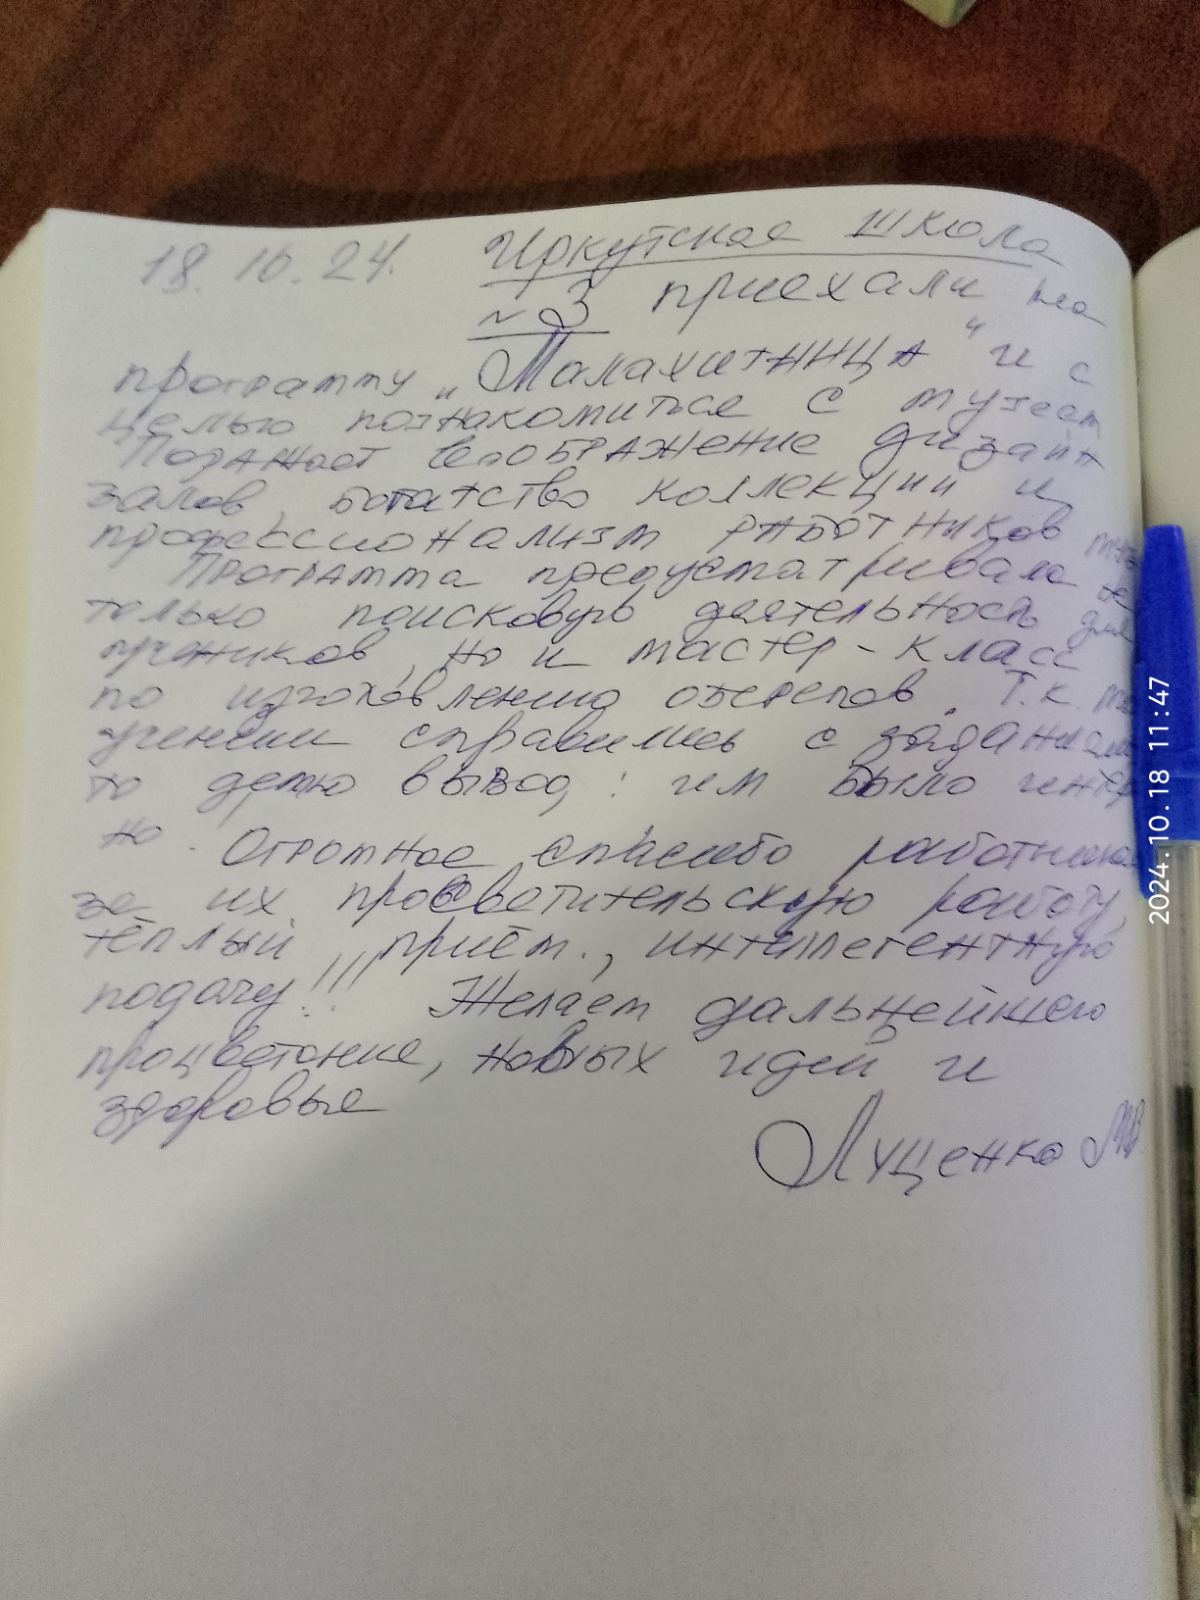 18.10.24. Иркутская школа
№ 3 приехали на
программу „Малахитница" и с
целью познакомиться с музеем
Поражает воображение дизайн
залов, богатство коллекции и
профессионализм работников
Программа предусматривала не
только поисковую деятельность для
учеников, но и мастер-класс
по изготовлению оберегов. Т.к.
ученики справились с заданием
то делаю вывод: им было интер
но. Огромное спасибо работникам
за их просветительскую работу,
тёплый приём., интеллегентную
подачу!!! Желаем дальнейшего
процветание, новых идей и
здоровье
Луценко МВ.
2024.10.18 11:47